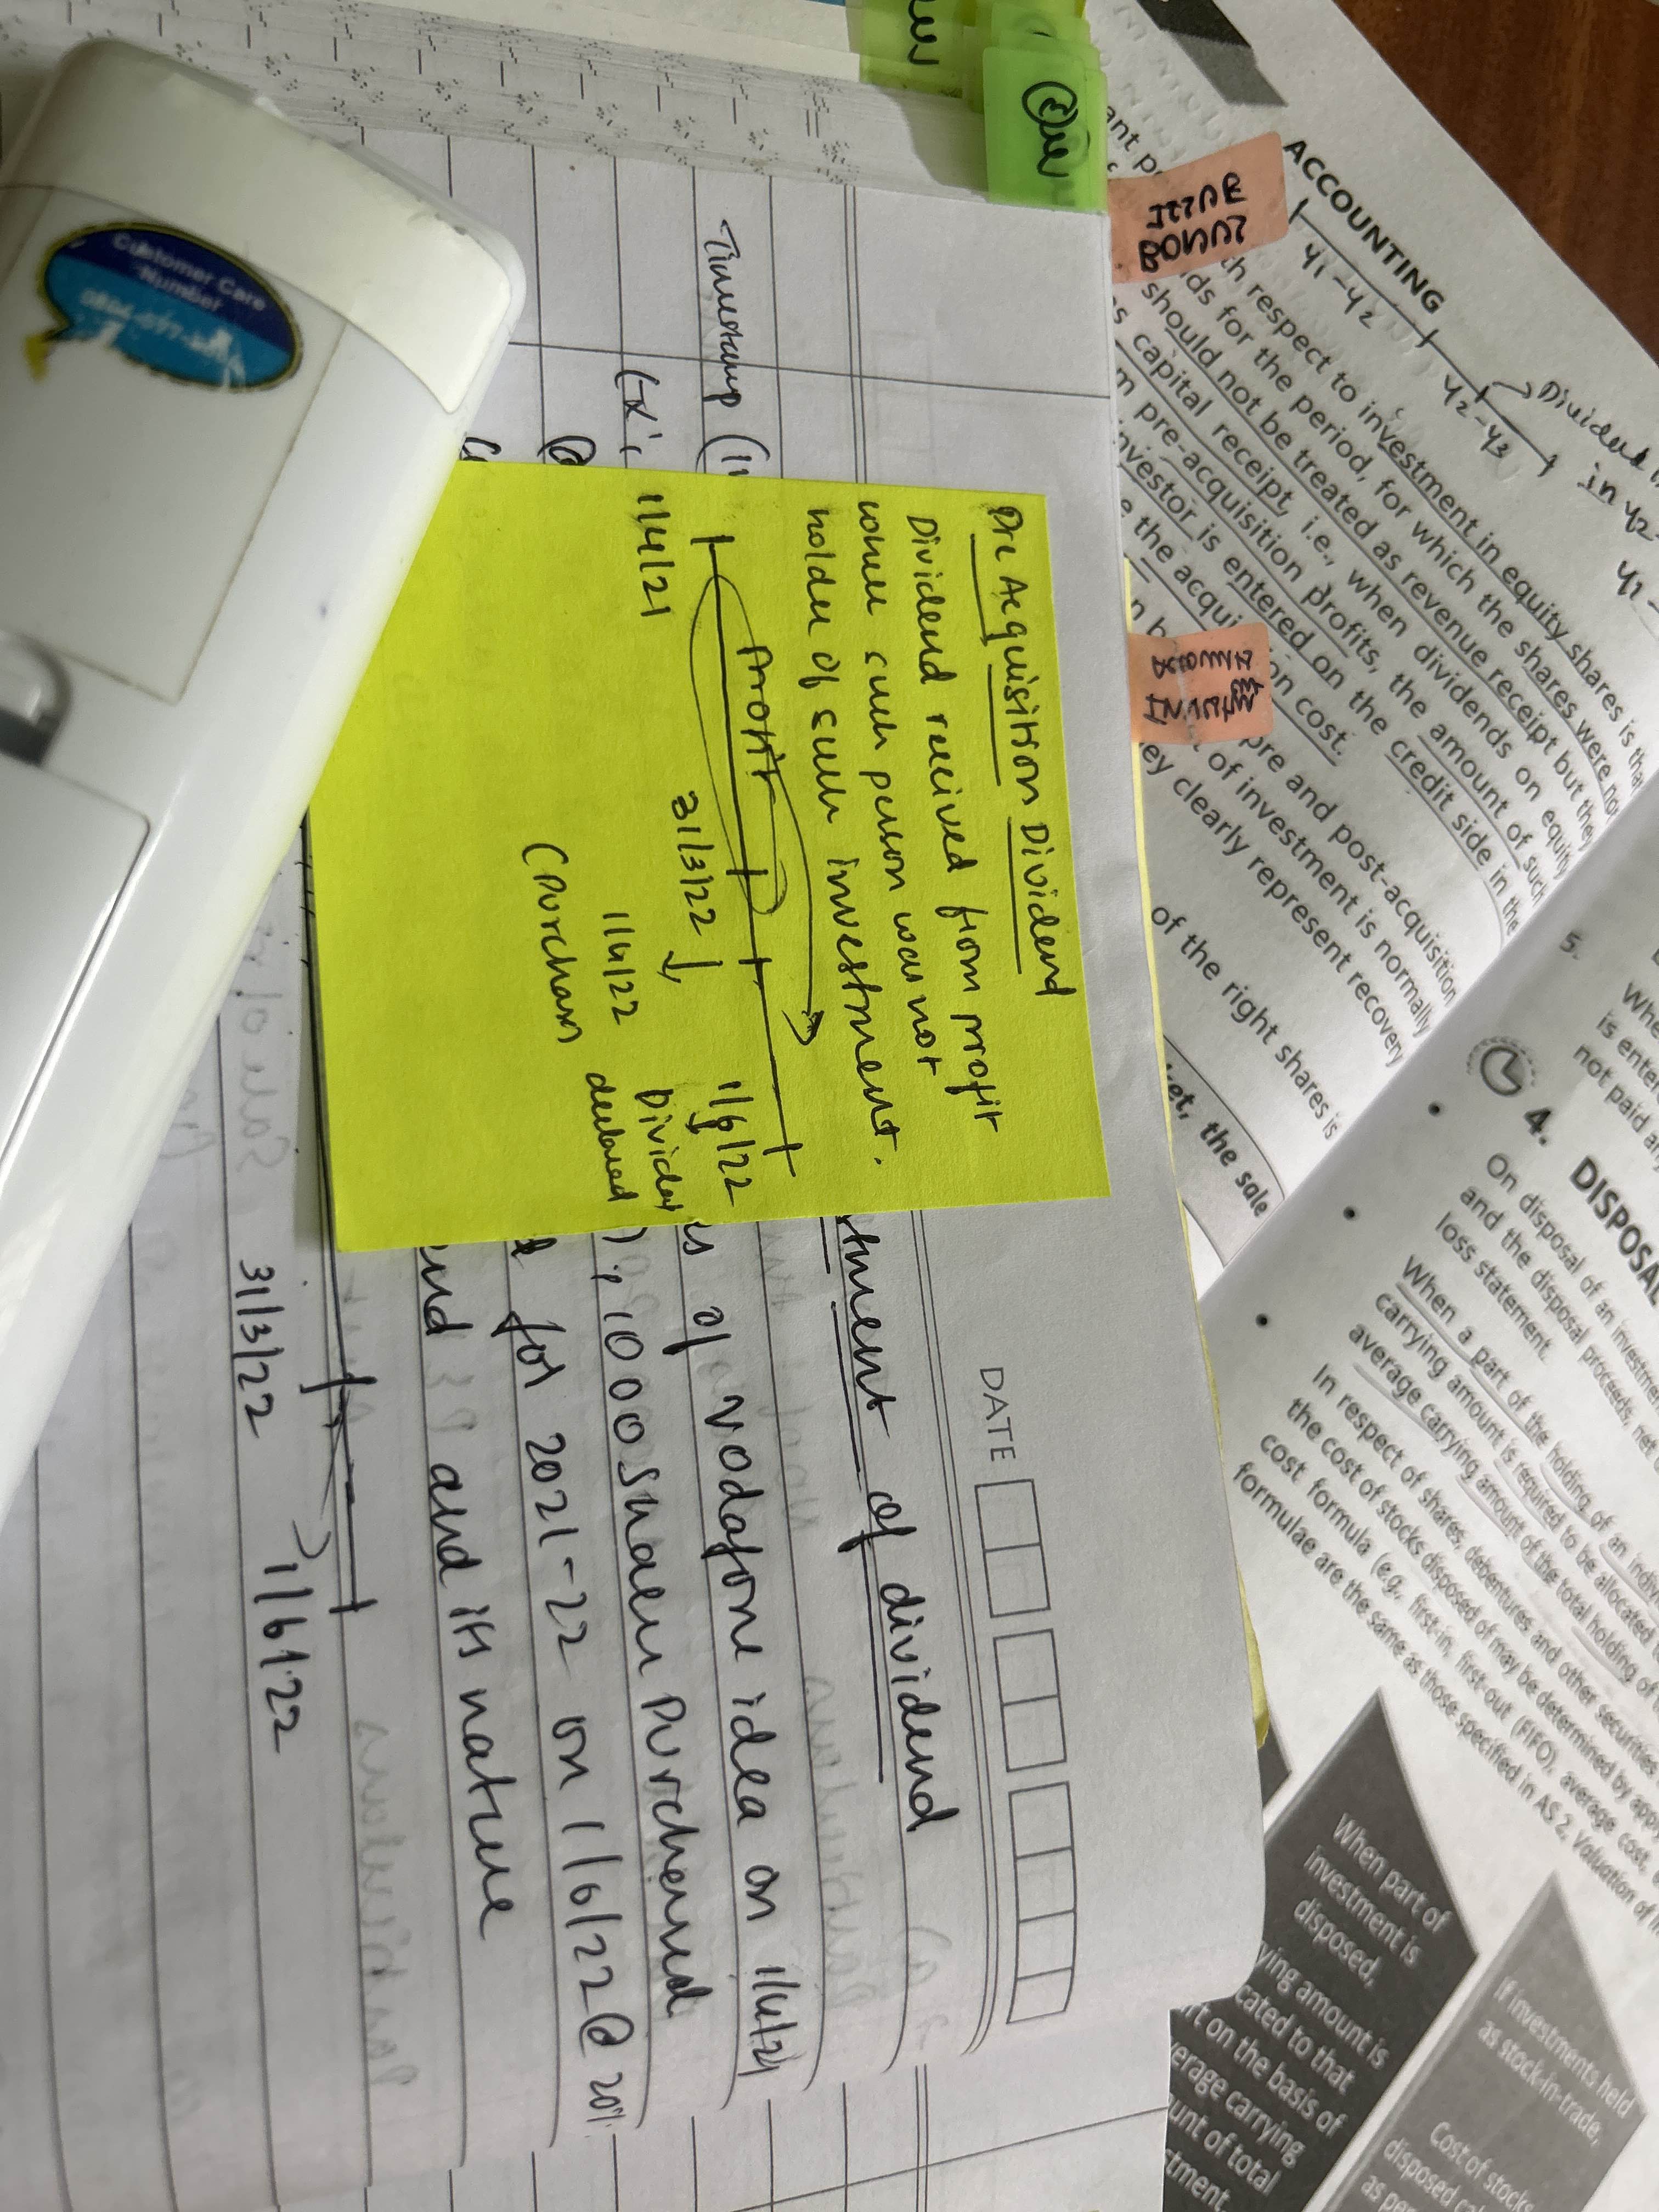 Pre Acquisition Dividend
Dividend received from profit
where such person was not
holder of such investment.
Profit
1/4/21
31/3/22
1/4/22
(Purchase
1/6/22
Dividend
declared
DATE
tment of dividend
Timestamp
of vodafone idea on 1/4/21
, 1000 Shares Purchased
for 2021-22 on 1/6/22 @ 20%
end and its nature
31/3/22
1/6/22
Customer Care
Number
BONUS
ISSUE
ACCOUNTING
Y1-Y2
Y2-Y3
Dividend
in Y2-
Y1-
ant p
th respect to investment in equity shares is that
ds for the period, for which the shares were not
should not be treated as revenue receipt but they
s capital receipt, i.e., when dividends on equity
m pre-acquisition profits, the amount of such
investor is entered on the credit side in the
e the acqui on cost.
pre and post-acquisition
of investment is normally
ey clearly represent recovery
of the right shares is
ket, the sale
5.
Whe
is enter
not paid an
4. DISPOSAL
On disposal of an investment
and the disposal proceeds, net
loss statement.
When a part of the holding of an indiv
carrying amount is required to be allocated t
average carrying amount of the total holding of
In respect of shares, debentures and other securities
the cost of stocks disposed of may be determined by app
cost formula (e.g., first-in, first-out (FIFO), average cost,
formulae are the same as those specified in AS 2, Valuation of In
When part of
investment is
disposed,
ying amount is
cated to that
t on the basis of
erage carrying
unt of total
stment.
If investments held
as stock-in-trade,
Cost of stocks
disposed
as per